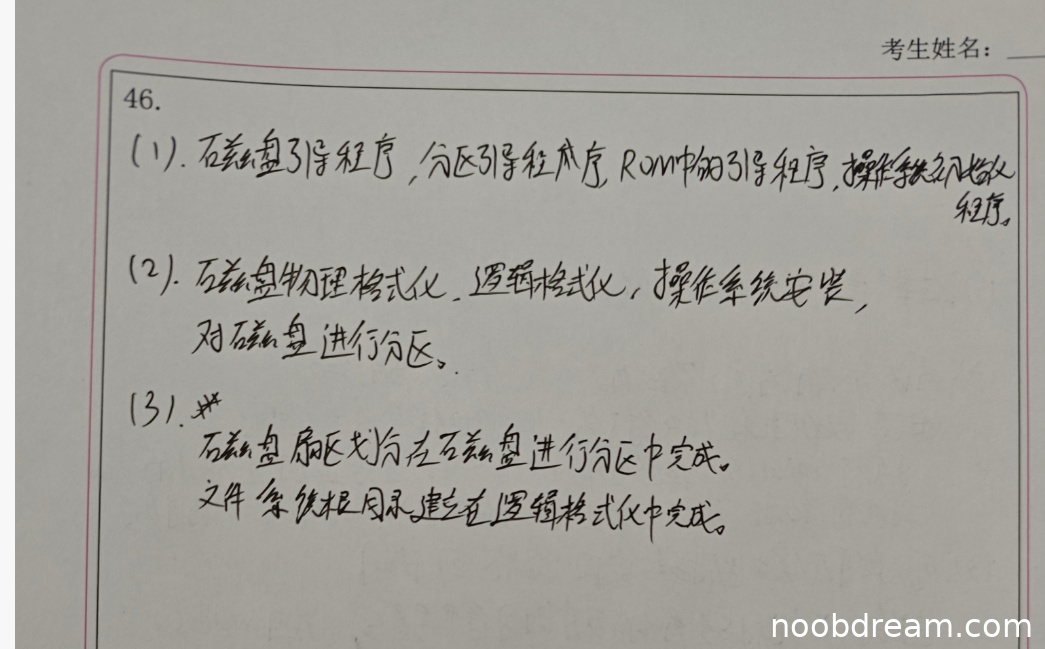 考生姓名：
46.
(1). 磁盘引导程序，分区引导程序，ROM中的引导程序，操作系统初始化
程序。
(2). 磁盘物理格式化、逻辑格式化，操作系统安装，
对磁盘进行分区。
(3).
磁盘扇区划分在磁盘进行分区中完成。
文件系统根目录建立在逻辑格式化中完成。
noobdream.com